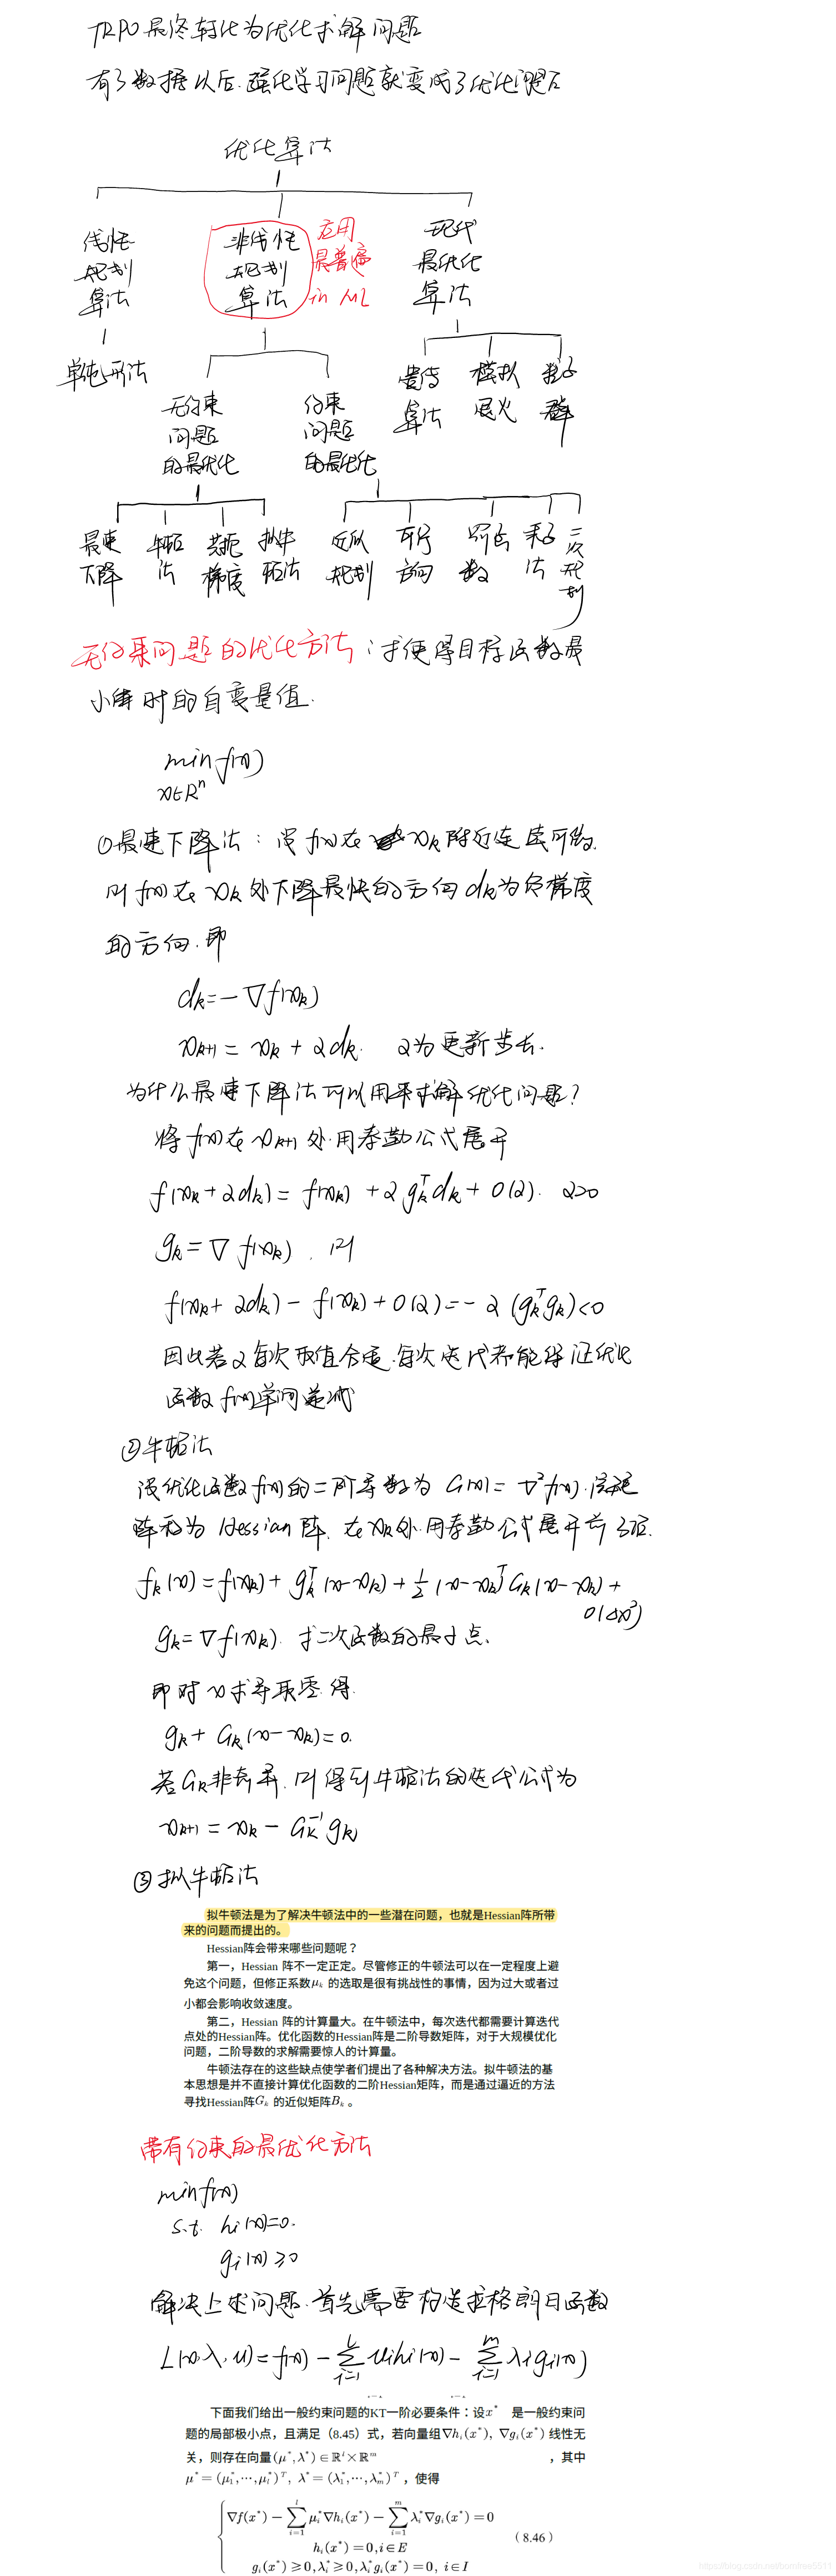 TRPO最终转化为优化求解问题
有了数据以后.强化学习问题就变成了优化问题
优化算法
线性
规划
算法
单纯形法
非线性
规划
算法
应用
最普遍
in ML
现代
最优化
算法
遗传
算法
模拟
退火
粒子
群
无约束
问题
的最优化
约束
问题
的最优化
最速
下降
牛顿
法
共轭
梯度
拟牛
顿法
近似
规划
可行
方向
罚函
数
乘子
法
二
次
规
划
无约束问题的优化方法:求使得目标函数最
小时的自变量值.
min f(x)
x∈Rⁿ
①最速下降法:设f(x)在xk附近连续可微.
则f(x)在xk处下降最快的方向dk为负梯度
的方向.即
dk=-∇f(xk)
xk+1=xk+αdk. α为更新步长.
为什么最速下降法可以用来求解优化问题?
将f(x)在xk+1处.用泰勒公式展开
f(xk+αdk)=f(xk)+αgkᵀdk+o(α). α>0
gk=∇f(xk).则
f(xk+αdk)-f(xk)+o(α)=-α(gkᵀgk)<0
因此若α每次取值合适.每次迭代都能保证优化
函数f(x)单调递减
②牛顿法
设优化函数f(x)的二阶导数为G(x)=∇²f(x).
阵称为Hessian阵.在xk处.用泰勒公式展开前3项.
fk(x)=f(xk)+gkᵀ(x-xk)+½(x-xk)ᵀGk(x-xk)+
o(Δx³)
gk=∇f(xk).求二次函数的最小点.
即对x求导取零.得.
gk+Gk(x-xk)=0.
若Gk非奇异.则得到牛顿法的迭代公式为
xk+1=xk-Gk⁻¹gk
③拟牛顿法
拟牛顿法是为了解决牛顿法中的一些潜在问题，也就是Hessian阵所带
来的问题而提出的。
Hessian阵会带来哪些问题呢？
第一，Hessian 阵不一定正定。尽管修正的牛顿法可以在一定程度上避
免这个问题，但修正系数μk 的选取是很有挑战性的事情，因为过大或者过
小都会影响收敛速度。
第二，Hessian 阵的计算量大。在牛顿法中，每次迭代都需要计算迭代
点处的Hessian阵。优化函数的Hessian阵是二阶导数矩阵，对于大规模优化
问题，二阶导数的求解需要惊人的计算量。
牛顿法存在的这些缺点使学者们提出了各种解决方法。拟牛顿法的基
本思想是并不直接计算优化函数的二阶Hessian矩阵，而是通过逼近的方法
寻找Hessian阵Gk 的近似矩阵Bk 。
带有约束的最优化方法
min f(x)
s.t. hi(x)=0.
gi(x)≥0
解决上述问题.首先需要构造拉格朗日函数
L(x,λ,u)=f(x)-∑ᵢ₌₁ˡ uihi(x)-∑ᵢ₌₁ᵐ λigi(x)
下面我们给出一般约束问题的KT一阶必要条件：设x* 是一般约束问
题的局部极小点，且满足（8.45）式，若向量组∇hi(x*), ∇gi(x*) 线性无
关，则存在向量(μ*,λ*)∈ℝˡ×ℝᵐ ，其中
μ*=(μ1*,⋯,μl*)ᵀ, λ*=(λ1*,⋯,λm*)ᵀ ，使得
∇f(x*)-∑ᵢ₌₁ˡ μi*∇hi(x*)-∑ᵢ₌₁ᵐ λi*∇gi(x*)=0
hi(x*)=0,i∈E （8.46）
gi(x*)≥0,λi*≥0,λi*gi(x*)=0, i∈I